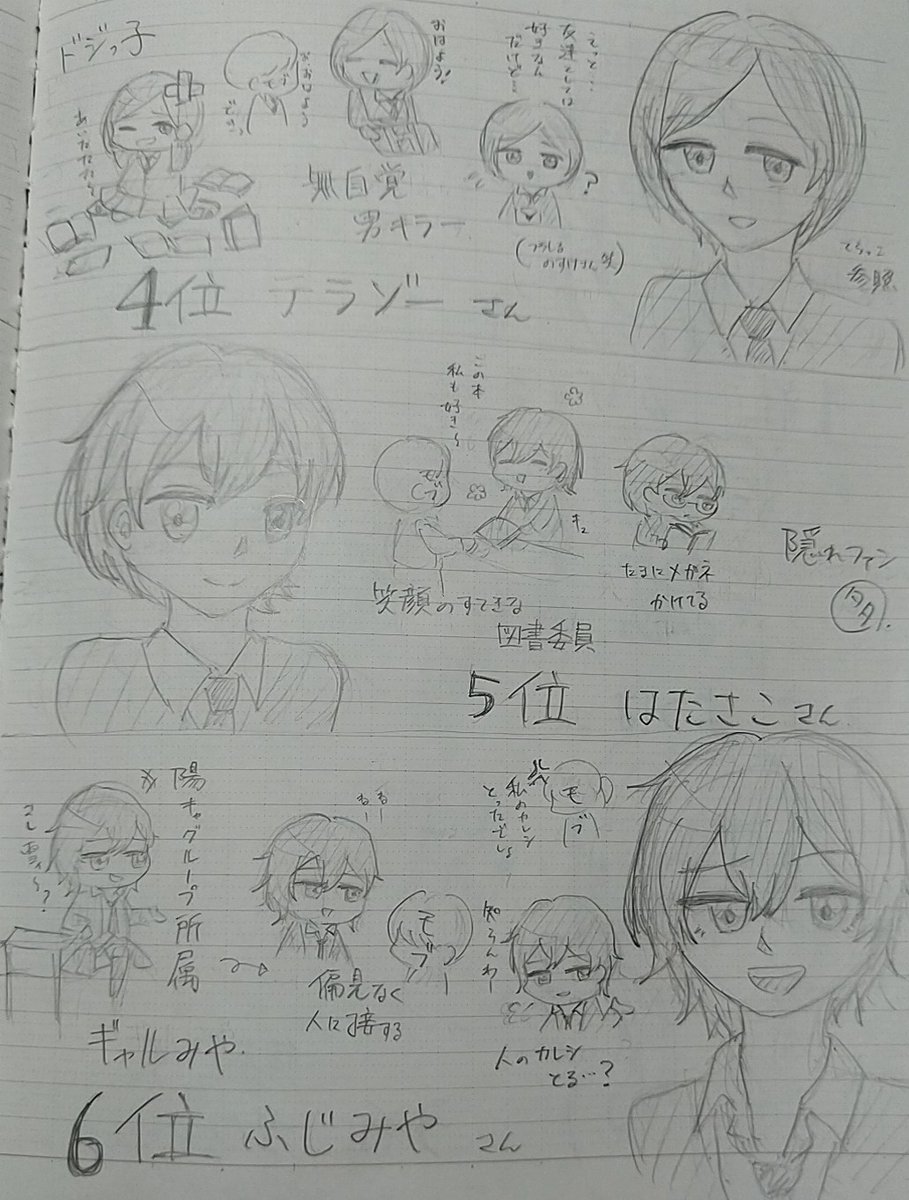 ドジっ子
あいたたた〜
お、おはよう
モブ
おはよう!
えっと…
友達としては
好きなん
だけど…
?
無自覚
男キラー
参照
4位 テラゾーさん
この本
私も好き〜
モブ
笑顔のすてきな
図書委員
たまにメガネ
かけてる
隠れファン
5位 はたさこさん
陽キャグループ所属
ギャルみや
偏見なく
人に接する
モブ
私のカレシ
とったでしょ
モブ
知らんわー
人のカレシ
とる…?
6位 ふじみやさん